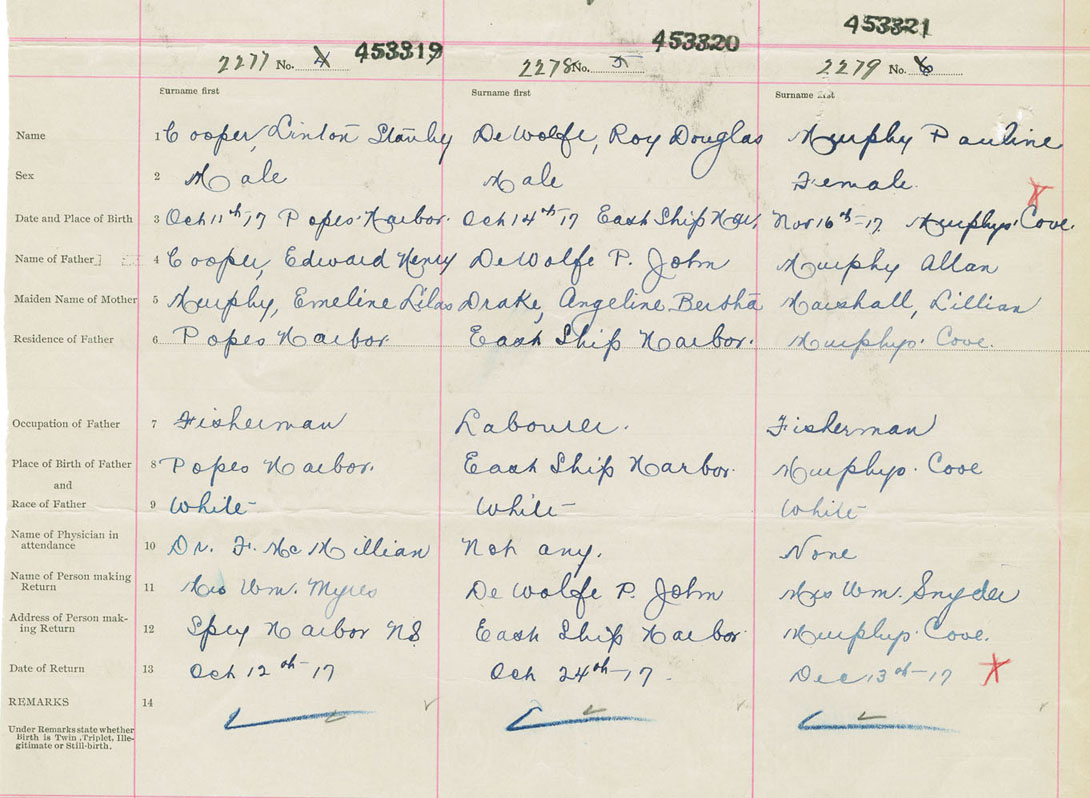 453319 453320 453321
2277 No. 4 2278 No. 5 2279 No. 6
Surname first Surname first Surname first
Name 1 Cooper, Linton Stanley DeWolfe, Roy Douglas Murphy Pauline
Sex 2 Male Male Female
Date and Place of Birth 3 Oct 11th-17 Popes Harbor. Oct 14th-17 East Ship Har, Nov 16th-17 Murphys Cove.
Name of Father 4 Cooper, Edward Henry DeWolfe P. John Murphy Allan
Maiden Name of Mother 5 Murphy, Emeline Lilas Drake, Angeline Bertha Marshall, Lillian
Residence of Father 6 Popes Harbor. East Ship Harbor. Murphys Cove.
Occupation of Father 7 Fisherman Labourer. Fisherman
Place of Birth of Father 8 Popes Harbor. East Ship Harbor. Murphys Cove
and
Race of Father 9 White White White
Name of Physician in
attendance 10 Dr. F. McMillian Not any. None
Name of Person making
Return 11 Mrs Wm. Myres DeWolfe P. John Mrs Wm. Snyder
Address of Person mak-
ing Return 12 Spry Harbor NS East Ship Harbor Murphys Cove.
Date of Return 13 Oct 12th-17 Oct 24th-17. Dec 13th-17
REMARKS 14
Under Remarks state whether
Birth is Twin, Triplet, Ille-
gitimate or Still-birth.